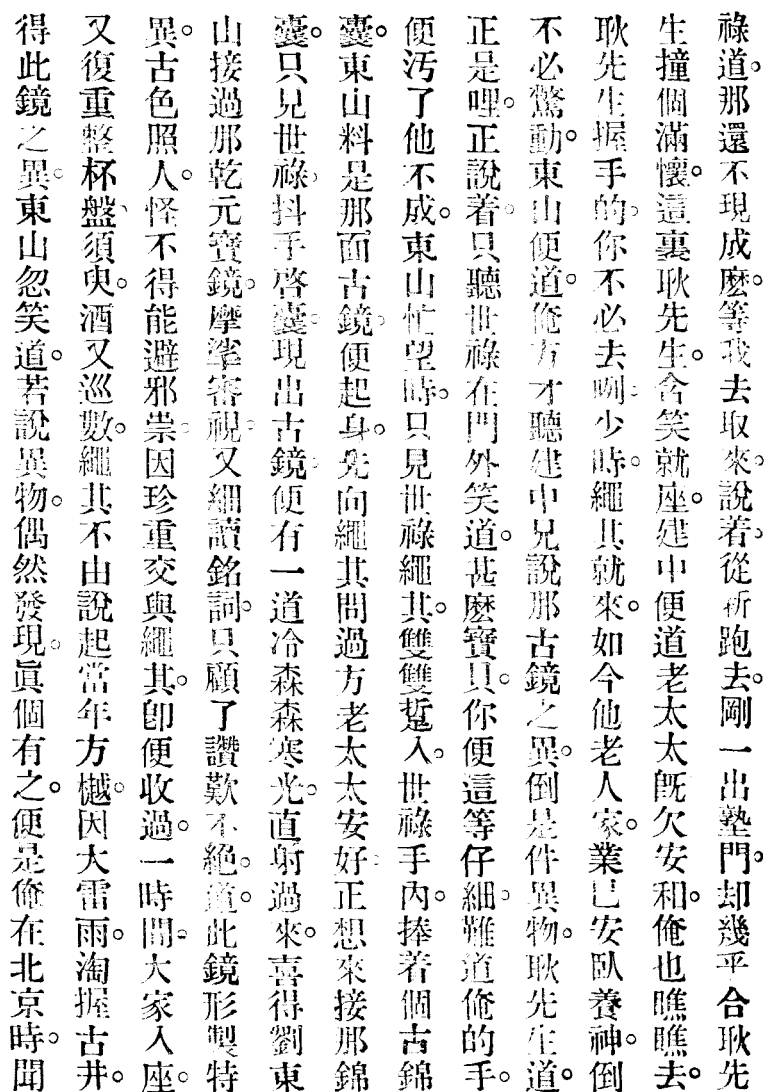 祿道。那還不現成麽。等我去取來。說着。從新跑去。剛一出塾門。却幾乎合耿先
生撞個滿懷。這裏耿先生。含笑就座。建中便道老太太旣欠安和。俺也瞧瞧去。
耿先生握手的。你不必去咧。少時。繩其就來。如今他老人家。業已安臥養神。倒
不必驚動。東山便道。俺方才聽建中兄說那古鏡之異。倒是件異物。耿先生道。
正是哩。正說着。只聽世祿在門外笑道。甚麽寶貝。你便這等仔細。難道俺的手。
便污了他不成。東山忙望時。只見世祿繩其。雙雙踅入。世祿手內。捧着個古錦
囊。東山料是那面古鏡。便起身。先向繩其問過方老太太安好。正想來接那錦
囊。只見世祿。抖手啓囊。現出古鏡。便有一道冷森森寒光。直射過來。喜得劉東
山接過那乾元寶鏡。摩挲審視。又細讀銘詞。只顧了讚歎不絕。道。此鏡形製特
異。古色照人。怪不得能避邪祟。因珍重交與繩其。卽便收過。一時間。大家入座。
又復重整杯盤。須臾。酒又巡數。繩其不由說起當年方樾。因大雷雨。淘掘古井。
得此鏡之異。東山忽笑道。若說異物。偶然發現。眞個有之。便是俺在北京時。聞